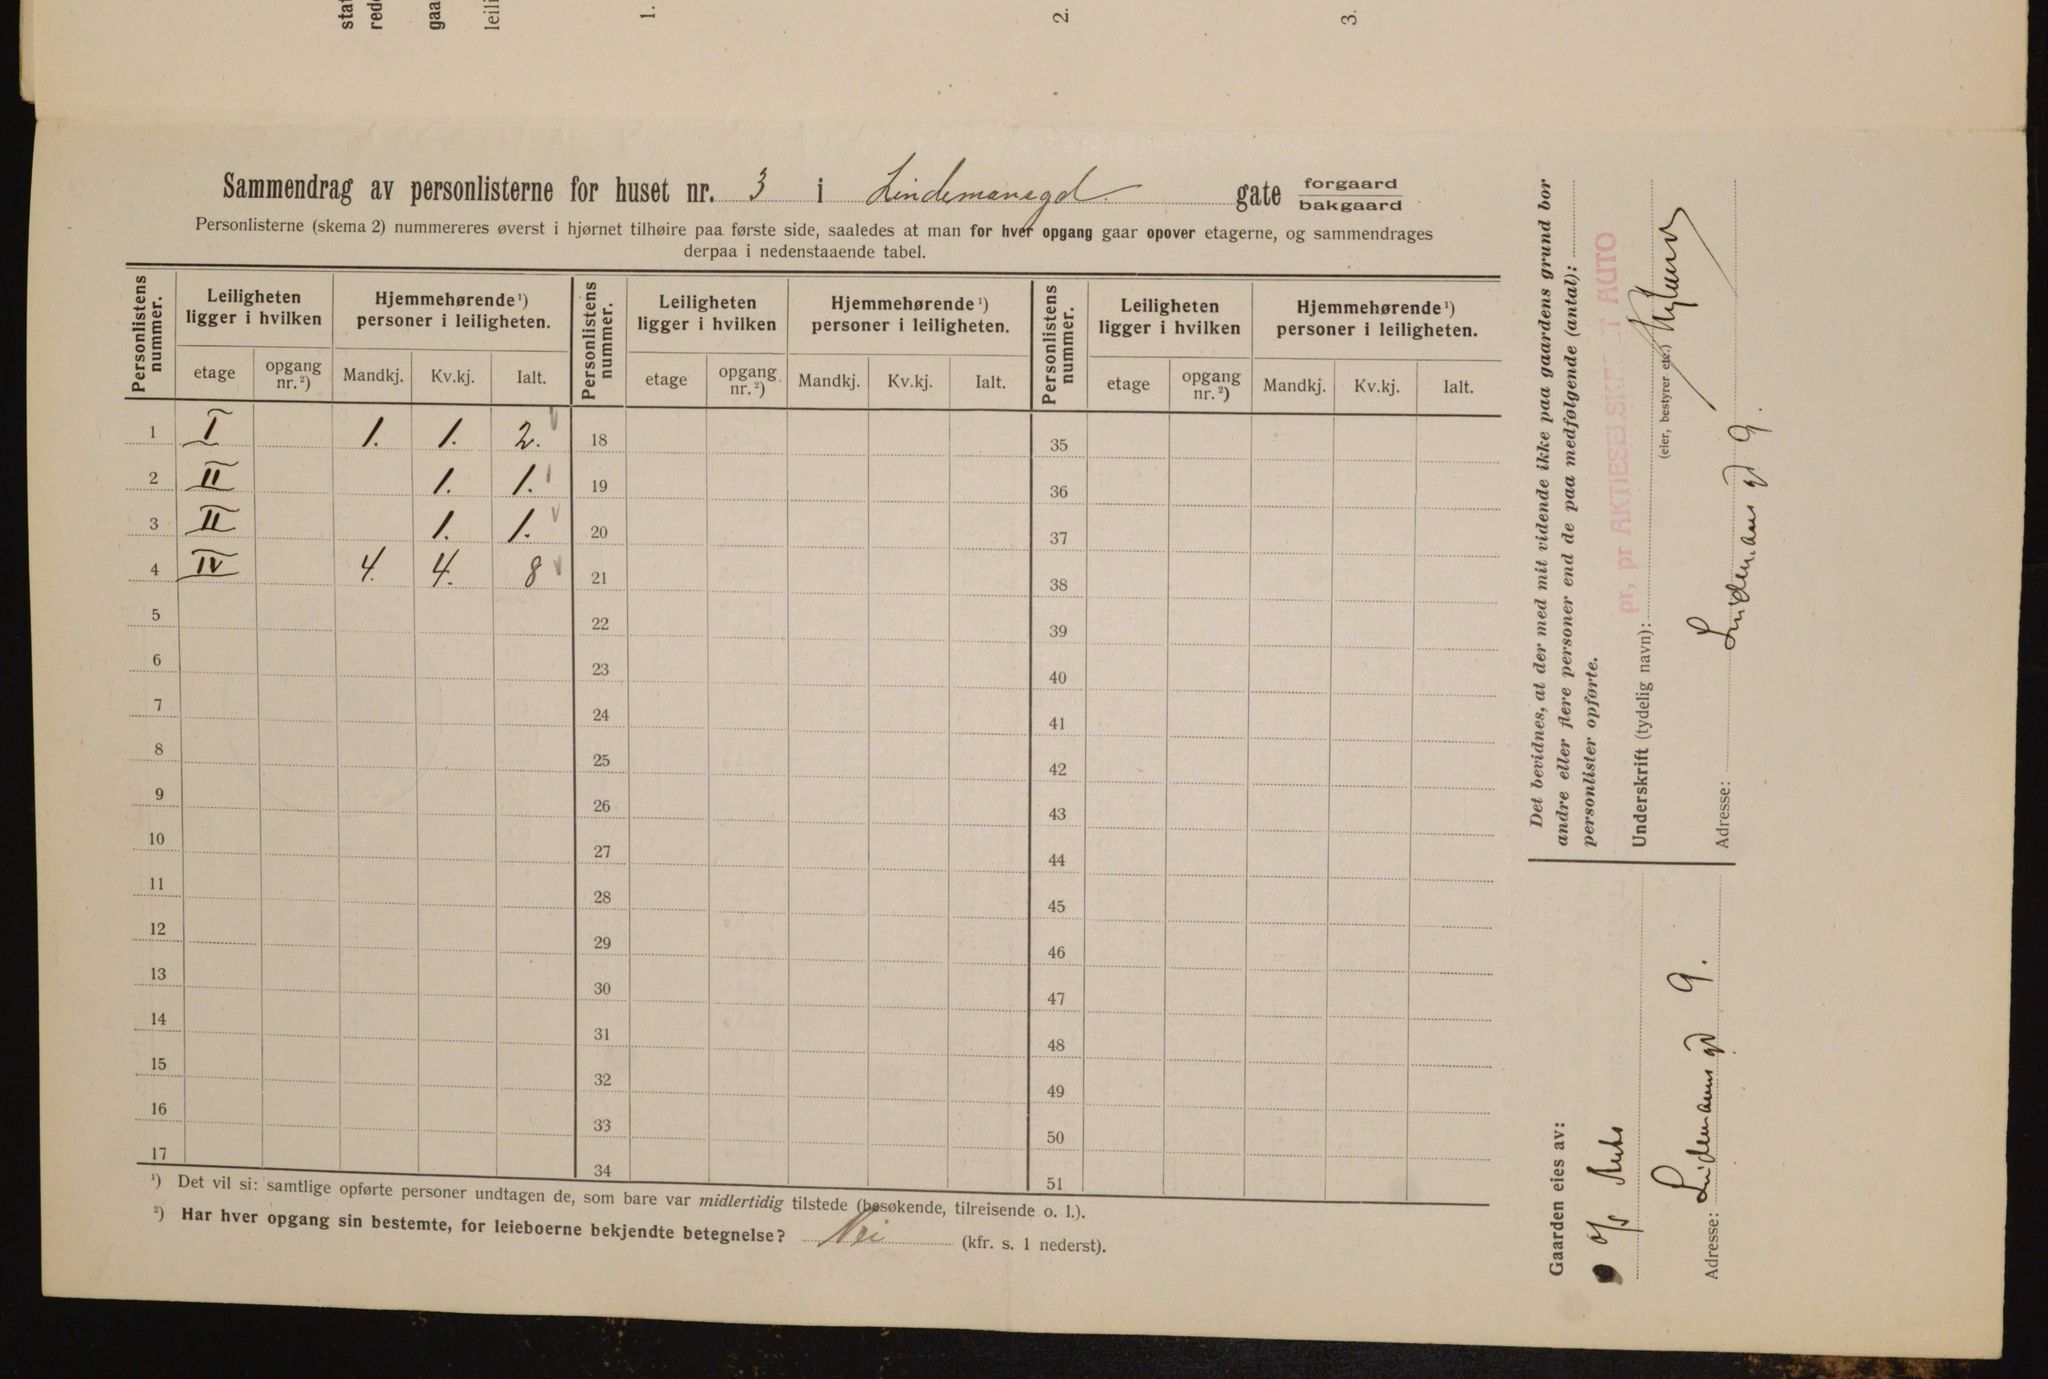 stat
rede
gaa
leili
1.
2.
3.
Sammendrag av personlisterne for huset nr. 3 i Lindemansgd gate forgaard
bakgaard
Personlisterne (skema 2) nummereres øverst i hjørnet tilhøire paa første side, saaledes at man for hver opgang gaar opover etagerne, og sammendrages
derpaa i nedenstaaende tabel.
Personlistens nummer. Leiligheten ligger i hvilken Hjemmehørende ¹) personer i leiligheten. Personlistens nummer. Leiligheten ligger i hvilken Hjemmehørende ¹) personer i leiligheten. Personlistens nummer. Leiligheten ligger i hvilken Hjemmehørende ¹) personer i leiligheten.
etage opgang nr. ²) Mandkj. Kv.kj. Ialt. etage opgang nr. ²) Mandkj. Kv.kj. Ialt. etage opgang nr. ²) Mandkj. Kv.kj. Ialt.
1 I 1. 1. 2. 18 35
2 II 1. 1. 19 36
3 II 1. 1. 20 37
4 IV 4. 4. 8 21 38
5 22 39
6 23 40
7 24 41
8 25 42
9 26 43
10 27 44
11 28 45
12 29 46
13 30 47
14 31 48
15 32 49
16 33 50
17 34 51
¹) Det vil si: samtlige opførte personer undtagen de, som bare var midlertidig tilstede (besøkende, tilreisende o. l.).
²) Har hver opgang sin bestemte, for leieboerne bekjendte betegnelse? Nei (kfr. s. 1 nederst).
Det bevidnes, at der med mit vidende ikke paa gaardens grund bor
andre eller flere personer end de paa medfølgende (antal):
personlister opførte.
pr, pr AKTIESELSKAPET AUTO
Underskrift (tydelig navn):
(eier, bestyrer etc.)
Adresse: Lindemans gd 9.
Gaarden eies av:
A/S Auto
Adresse: Lindemans gd 9.